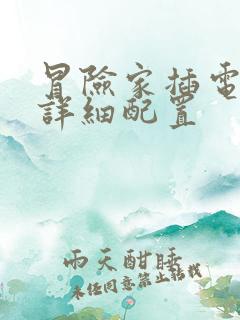 冒險家插電
詳細配置
雨天酣睡
未经同意禁止转载